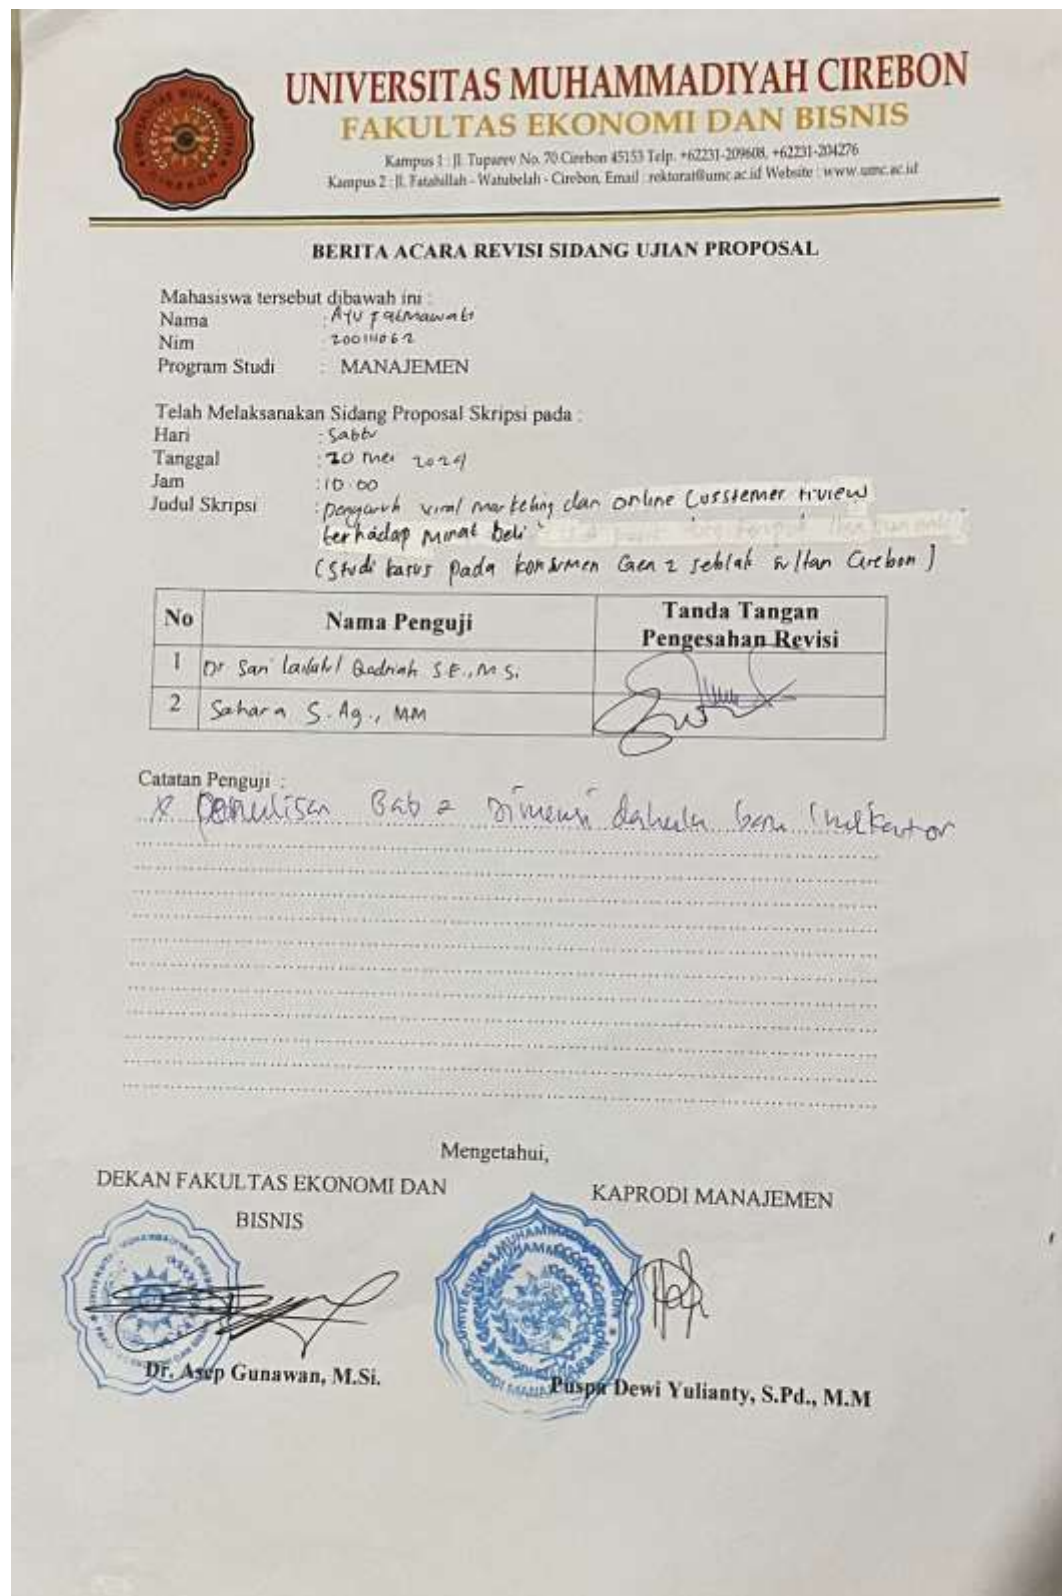 UNIVERSITAS MUHAMMADIYAH CIREBON
FAKULTAS EKONOMI DAN BISNIS
Kampus 1 : Jl. Tuparev No. 70 Cirebon 45153 Telp. +62231-209608, +62231-204276
Kampus 2 : Jl. Fatahillah - Watubelah - Cirebon, Email : rektorat@umc.ac.id Website : www.umc.ac.id
BERITA ACARA REVISI SIDANG UJIAN PROPOSAL
Mahasiswa tersebut dibawah ini :
Nama : Ayu Fatmawati
Nim : 200111062
Program Studi : MANAJEMEN
Telah Melaksanakan Sidang Proposal Skripsi pada :
Hari : Sabtu
Tanggal : 20 mei 2024
Jam : 10.00
Judul Skripsi : pengaruh viral marketing dan online
terhadap minat beli
(Studi kasus pada konsumen Gen z seblak sultan Cirebon)
No Nama Penguji Tanda Tangan
Pengesahan Revisi
1 Dr Sari Lailatul Qodriah S.E., M.Si.
2 Sahara S.Ag., MM
Catatan Penguji :
penulisan Bab 2 Dimensi dahulu baru Indikator
Mengetahui,
DEKAN FAKULTAS EKONOMI DAN
BISNIS
KAPRODI MANAJEMEN
Dr. Asep Gunawan, M.Si.
Puspa Dewi Yulianty, S.Pd., M.M